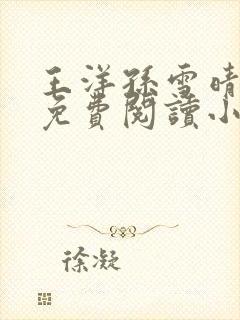 王洋孫雪晴
免費閱讀小
徐凝